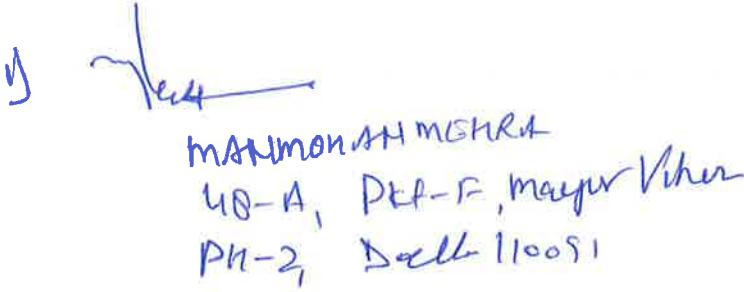 1)
MANMOHAN MEHRA
48-A, Pkt-F, Mayur Vihar
PH-2, Delhi 110091